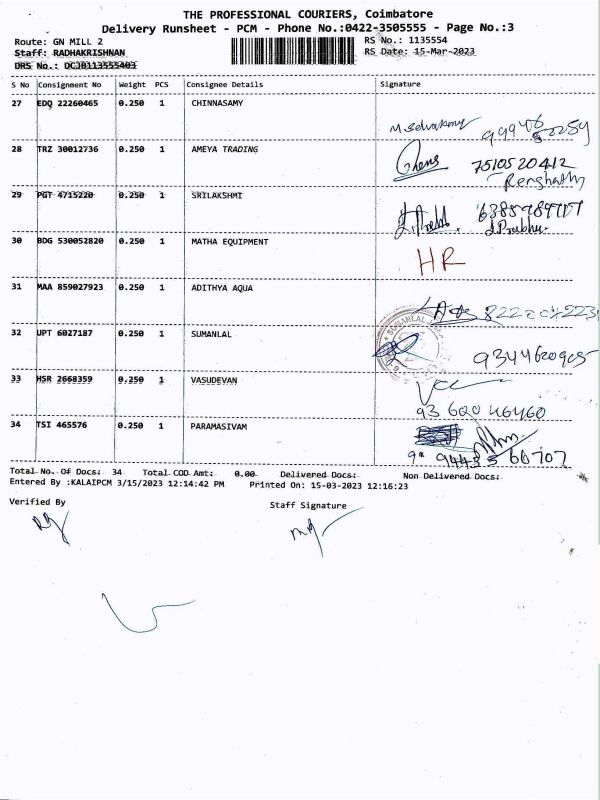 THE PROFESSIONAL COURIERS, Coimbatore
Delivery Runsheet - PCM - Phone No.:0422-3505555 - Page No.:3
Route: GN MILL 2 RS No.: 1135554
Staff: RADHAKRISHNAN RS Date: 15-Mar-2023
DRS No.: DCJB113555403
S No Consignment No Weight PCS Consignee Details Signature
27 EDQ 22260465 0.250 1 CHINNASAMY
M. Selvakumar
28 TRZ 30012736 0.250 1 AMEYA TRADING
7510520412
29 PGT 4715220 0.250 1 SRILAKSHMI
J. Prabhu.
30 BDG 530052820 0.250 1 MATHA EQUIPMENT
HR
31 MAA 859027923 0.250 1 ADITHYA AQUA
32 UPT 6027187 0.250 1 SUMANLAL
SUMANLAL
9344620905
33 HSR 2668359 0.250 1 VASUDEVAN
93 600 46460
34 TSI 465576 0.250 1 PARAMASIVAM
Total No. Of Docs: 34 Total COD Amt: 0.00 Delivered Docs: Non Delivered Docs:
Entered By :KALAIPCM 3/15/2023 12:14:42 PM Printed On: 15-03-2023 12:16:23
Verified By Staff Signature